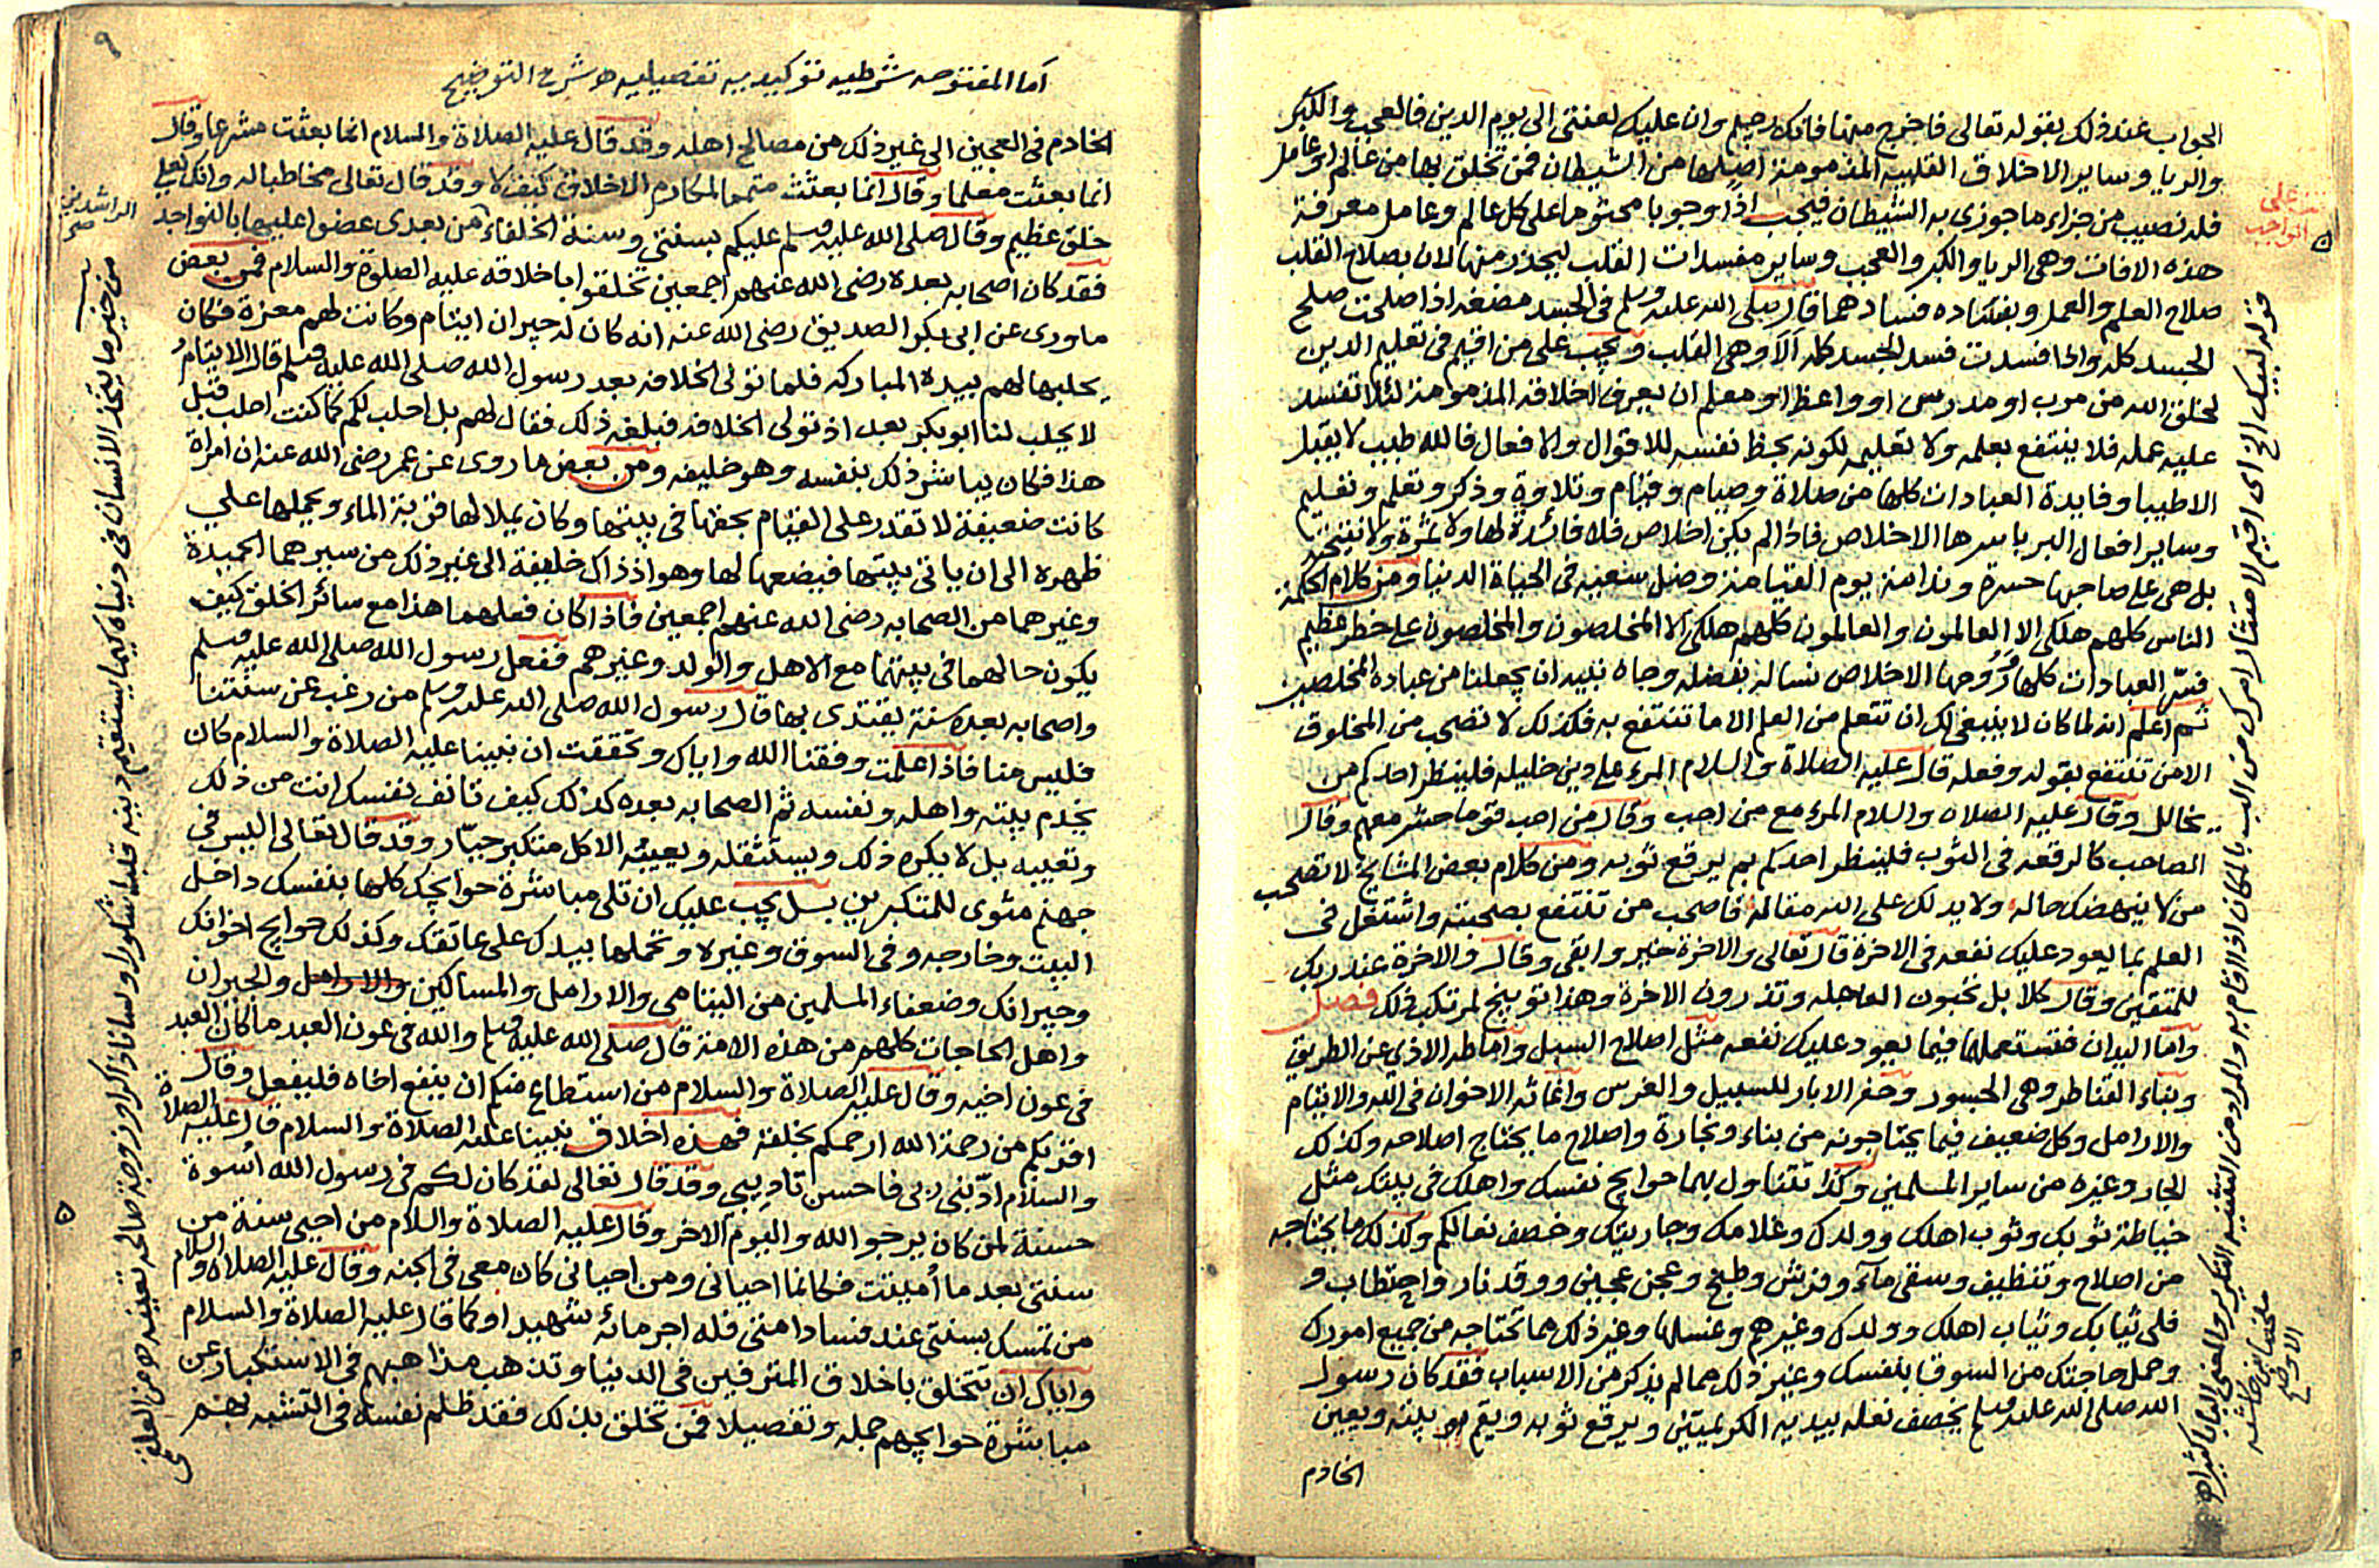 الجواب عند ذلك بقوله تعالى فاخرج منها فانك رجيم وان عليك لعنتي الى يوم الدين فالعجب والكبر
والريا وساير الاخلاق القلبيه المذمومة اصلها من الشيطان فمن تخلق بها من عالم او عامل
فله نصيب من جزاء ما جوزى به الشيطان فيجب اذا وجوبا محتوما على كل عالم وعامل معرفة
هذه الافات وهى الريا والكبر والعجب وساير مفسدات القلب ليحذر منها لان بصلاح القلب
صلاح العلم والعمل وبفساده فسادهما قال صلى الله عليه وسلم فى الجسد مضغه اذا صلحت صلح
الجسد كله واذا فسدت فسد الجسد كله ألا وهى القلب ويجب على من اقيم فى تعليم الدين
لخلق الله من مرب او مدرس او واعظ او معلم ان يعرف اخلاقه المذمومة لئلا تفسد
عليه عمله فلا ينتفع بعلمه ولا تعليمه لكونه بحظ نفسه للاقوال والافعال فالله طيب لا يقبل
الا طيبا وفايدة العبادات كلها من صلاة وصيام وقيام وتلاوة وذكر وتعلم وتعليم
وساير افعال البر باسرها الاخلاص فاذا لم يكن اخلاص فلا فائدة لها ولا ثمرة ولا نتيجة
بل هى على صاحبها حسرة وندامة يوم القيامة وضل سعيه فى الحياة الدنيا ومن كلام الحكمة
الناس كلهم هلكى الا العالمون والعالمون كلهم هلكى الا المخلصون والمخلصون على خطر عظيم
فسر العبادات كلها وروحها الاخلاص نساله بفضله وجاه نبيه ان يجعلنا من عباده المخلصين
ثم اعلم انه لما كان لا ينبغى لك ان تتعلم من العلم الا ما تنتفع به فكذلك لا تصحب من المخلوق
الا من تنتفع بقوله وفعله قال عليه الصلاة والسلام المرء على دين خليله فلينظر احدكم من
يخالل وقال عليه الصلاه والسلام المرء مع من احب وقال من احب قوما حشر معهم وقال
الصاحب كالرقعه فى الثوب فلينظر احدكم بم يرقع ثوبه ومن كلام بعض المشايخ لا تصحب
من لا ينهضك حاله ولا يدلك على الله مقاله فاصحب من تنتفع بصحبته واشتغل فى
العلم بما يعود عليك نفعه فى الاخرة قال تعالى والاخرة خير وابقى وقال والاخرة عند ربك
للمتقين وقال كلا بل تحبون العاجله وتذرون الاخرة وهذا توبيخ لمرتكب ذلك فصل
واما اليدان فتستعملهما فيما يعود عليك نفعه مثل اصلاح السبل واماطه الاذى عن الطريق
وبناء القناطر وهى الجسور وحفر الابار للسبيل والغرس واغاثه الاخوان فى الله والايتام
والارامل وكل ضعيف فيما يحتاجونه من بناء ونجارة واصلاح ما يحتاج اصلاحه وكذلك
الجار وغيره من ساير المسلمين وكذا تتناول بهما حوايج نفسك واهلك فى بيتك مثل
خياطة ثوبك وثوب اهلك وولدك وغلامك وجاريتك وخصف نعالكم وكذلك ما يحتاجه
من اصلاح وتنظيف وسقى مآء وفرش وطبخ وعجن عجين ووقد نار واحتطاب و
فلى ثيابك وثياب اهلك وولدك وغيرهم وغسلها وغير ذلك مما تحتاجه من جميع امورك
وحمل حاجتك من السوق بنفسك وغير ذلك مما لم يذكر من الاسباب فقد كان رسول
الله صلى الله عليه وسلم يخصف نعله بيديه الكريمتين ويرقع ثوبه ويقم بيته ويعين
الخادم
على
الواجب
قوله لبيك الخ اى اقيم لامتثال امرك من الب بالمكان اذا اقام به والمراد من التثنيه التكرير والمعنى البابا كثيرا
٩
اما المفتوحه شرطيه توكيديه تفصيليه شرح التوضيح
الخادم فى العجين الى غير ذلك من مصالح اهله وقد قال عليه الصلاة والسلام انما بعثت مشرعا وقال
انما بعثت معلما وقال انما بعثت متمما لمكارم الاخلاق كيف لا وقد قال تعالى مخاطبا له وانك لعلى
خلق عظيم وقال صلى الله عليه وسلم عليكم بسنتى وسنة الخلفاء من بعدى عضوا عليها بالنواجد
الراشدين
صح
فقد كان اصحابه بعده رضى الله عنهم اجمعين تخلقوا باخلاقه عليه الصلوة والسلام فمن بعض
ما روى عن ابى بكر الصديق رضى الله عنه انه كان له جيران ايتام وكانت لهم معزة فكان
يحلبها لهم بيده المباركه فلما تولى الخلافه بعد رسول الله صلى الله عليه وسلم قال الايتام
لا يحلب لنا ابو بكر بعد اذ تولى الخلافه فبلغه ذلك فقال لهم بل احلب لكم كما كنت احلب قبل
هذا فكان يباشر ذلك بنفسه وهو خليفه ومن بعض ما روى عن عمر رضى الله عنه ان امراة
كانت ضعيفة لا تقدر على القيام بحقها فى بيتها وكان يملا لها قربة الماء ويحملها على
ظهره الى ان ياتى بيتها فيضعها لها وهو اذ ذاك خليفة الى غير ذلك من سيرهما الحميدة
وغيرهما من الصحابه رضى الله عنهم اجمعين فاذا كان فعلهما هذا مع سائر الخلق كيف
يكون حالهما فى بيتهما مع الاهل والولد وغيرهم ففعل رسول الله صلى الله عليه وسلم
واصحابه بعده سنة يقتدى بها قال رسول الله صلى الله عليه وسلم من رغب عن سنتنا
فليس منا فاذا علمت وفقنا الله واياك وتحققت ان نبينا عليه الصلاة والسلام كان
يخدم بيته واهله ونفسه ثم الصحابه بعده كذلك كيف تانف نفسك انت من ذلك
وتعيبه بل لا يكره ذلك ويستثقله ويعيبه الا كل متكبر جبار وقد قال تعالى اليس فى
جهنم مثوى للمتكبرين بل يجب عليك ان تلى مباشرة حوايجك كلها بنفسك داخل
البيت وخارجه وفى السوق وغيره وتحملها بيدك على عاتقك وكذلك حوايج اخوانك
وجيرانك وضعفاء المسلمين من اليتامى والارامل والمساكين والارامل والجيران
واهل الحاجات كلهم من هذه الامة قال صلى الله عليه وسلم والله فى عون العبد ما كان العبد
فى عون اخيه وقال عليه الصلاة والسلام من استطاع منكم ان ينفع اخاه فليفعل وقال
اقربكم من رحمة الله ارحمكم بخلقه فهذه اخلاق نبينا عليه الصلاة والسلام قال عليه الصلاة
والسلام ادّبنى ربى فاحسن تاديبى وقد قال تعالى لقد كان لكم فى رسول الله أسوة
حسنة لمن كان يرجو الله واليوم الاخر وقال عليه الصلاة والسلام من احيى سنة من
سنتى بعد ما أميتت فكانما احيانى ومن احيانى كان معى فى الجنه وقال عليه الصلاه والسلام
من تمسك بسنتى عند فساد امتى فله اجر مائة شهيد او كما قال عليه الصلاة والسلام
واياك ان تتخلق باخلاق المترفين فى الدنيا وتذهب مذاهبهم فى الاستكبار عن
مباشرة حوايجهم جمله وتفصيلا فمن تخلق بذلك فقد ظلم نفسه فى التشبه بهم
من خير ما يتخذ الانسان فى دنياه كيما يستقيم دينه قلبا شكورا ولسانا ذاكرا وزوجة صالحه تعينه